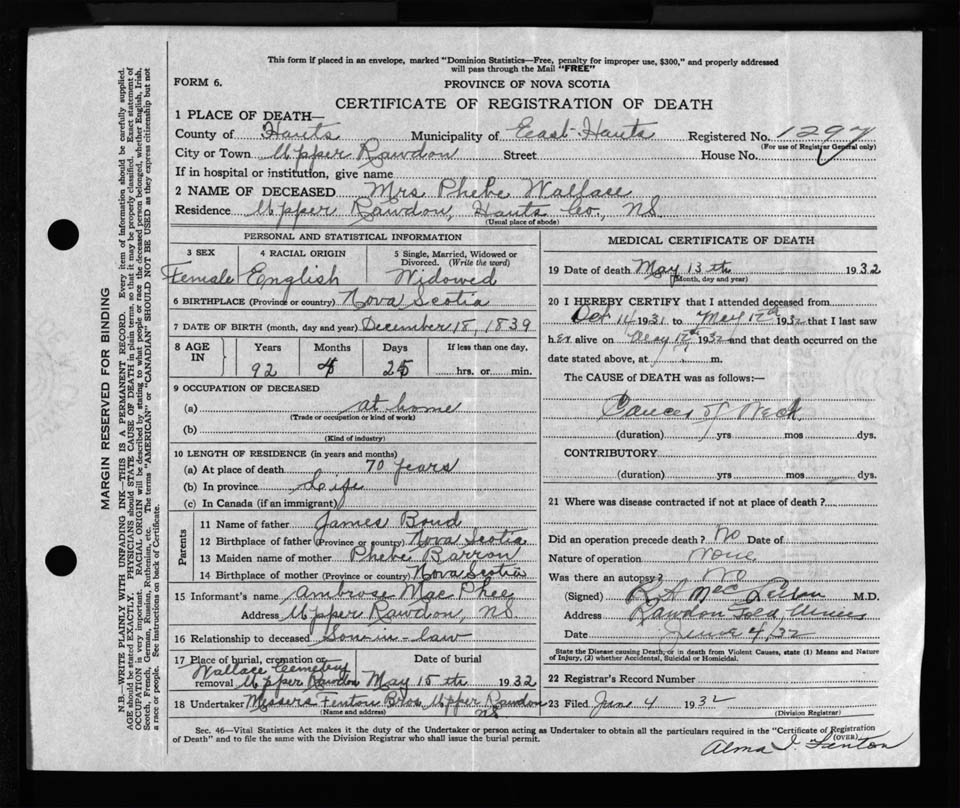 This form if placed in an envelope, marked "Dominion Statistics—Free, penalty for improper use, $300," and properly addressed
will pass through the Mail "FREE"
FORM 6.
PROVINCE OF NOVA SCOTIA
CERTIFICATE OF REGISTRATION OF DEATH
1 PLACE OF DEATH—
County of Hants Municipality of East-Hants Registered No. 1297
(For use of Registrar General only)
City or Town Upper Rawdon Street House No.
If in hospital or institution, give name
2 NAME OF DECEASED Mrs Phebe Wallace
Residence Upper Rawdon, Hants Co., NS.
(Usual place of abode)
PERSONAL AND STATISTICAL INFORMATION
3 SEX 4 RACIAL ORIGIN 5 Single, Married, Widowed or
Divorced. (Write the word)
Female English Widowed
6 BIRTHPLACE (Province or country) Nova Scotia
7 DATE OF BIRTH (month, day and year) December 18, 1839
8 AGE IN Years Months Days If less than one day.
92 25 hrs. or min.
9 OCCUPATION OF DECEASED
(a) at home
(Trade or occupation or kind of work)
(b)
(Kind of industry)
10 LENGTH OF RESIDENCE (in years and months)
(a) At place of death 70 years
(b) In province Life
(c) In Canada (if an immigrant)
Parents
11 Name of father James Bond
12 Birthplace of father (Province or country) Nova Scotia
13 Maiden name of mother Phebe Barron
14 Birthplace of mother (Province or country) Nova Scotia
15 Informant's name Ambrose Mac Phee
Address Upper Rawdon, NS
16 Relationship to deceased Son-in-law
17 Place of burial, cremation or removal Date of burial
Wallace Cemetery
Upper Rawdon May 15th 1932
18 Undertaker Messers Fenton Bros, Upper Rawdon
NS
(Name and address)
MEDICAL CERTIFICATE OF DEATH
19 Date of death May 13th 1932
(Month, day and year)
20 I HEREBY CERTIFY that I attended deceased from
Oct 14 1931 to May 12th 1932 that I last saw
her alive on May 12th 1932 and that death occurred on the
date stated above, at m.
The CAUSE of DEATH was as follows:—
Cancer of Neck
(duration) yrs mos dys.
CONTRIBUTORY
(duration) yrs mos dys.
21 Where was disease contracted if not at place of death?
Did an operation precede death? No Date of
Nature of operation None
Was there an autopsy? No
(Signed) R A McLellan M.D.
Address Rawdon Gold Mines
Date June 4, 32
State the Disease causing Death, or in death from Violent Causes, state (1) Means and Nature
of Injury, (2) whether Accidental, Suicidal or Homicidal.
22 Registrar's Record Number
23 Filed June 4 1932
(Division Registrar)
Sec. 46—Vital Statistics Act makes it the duty of the Undertaker or person acting as Undertaker to obtain all the particulars required in the "Certificate of Registration
of Death" and to file the same with the Division Registrar who shall issue the burial permit.
(OVER)
Alma I. Fenton
MARGIN RESERVED FOR BINDING
N.B.—WRITE PLAINLY WITH UNFADING INK—THIS IS A PERMANENT RECORD. Every item of information should be carefully supplied.
AGE should be stated EXACTLY. PHYSICIANS should STATE CAUSE OF DEATH in plain terms, so that it may be properly classified. Exact statement of
OCCUPATION is very important. RACIAL ORIGIN will be described by stating to what people or race the deceased person belonged, whether English, Irish,
Scotch, French, German, Russian, Ruthenian, etc. The terms "AMERICAN" or "CANADIAN" SHOULD NOT BE USED as they express citizenship but not
a race or people. See instructions on back of Certificate.